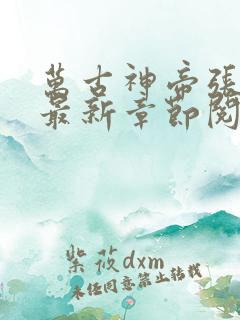 萬古神帝張
最新章節閱
紫筱dxm
未经同意禁止转载